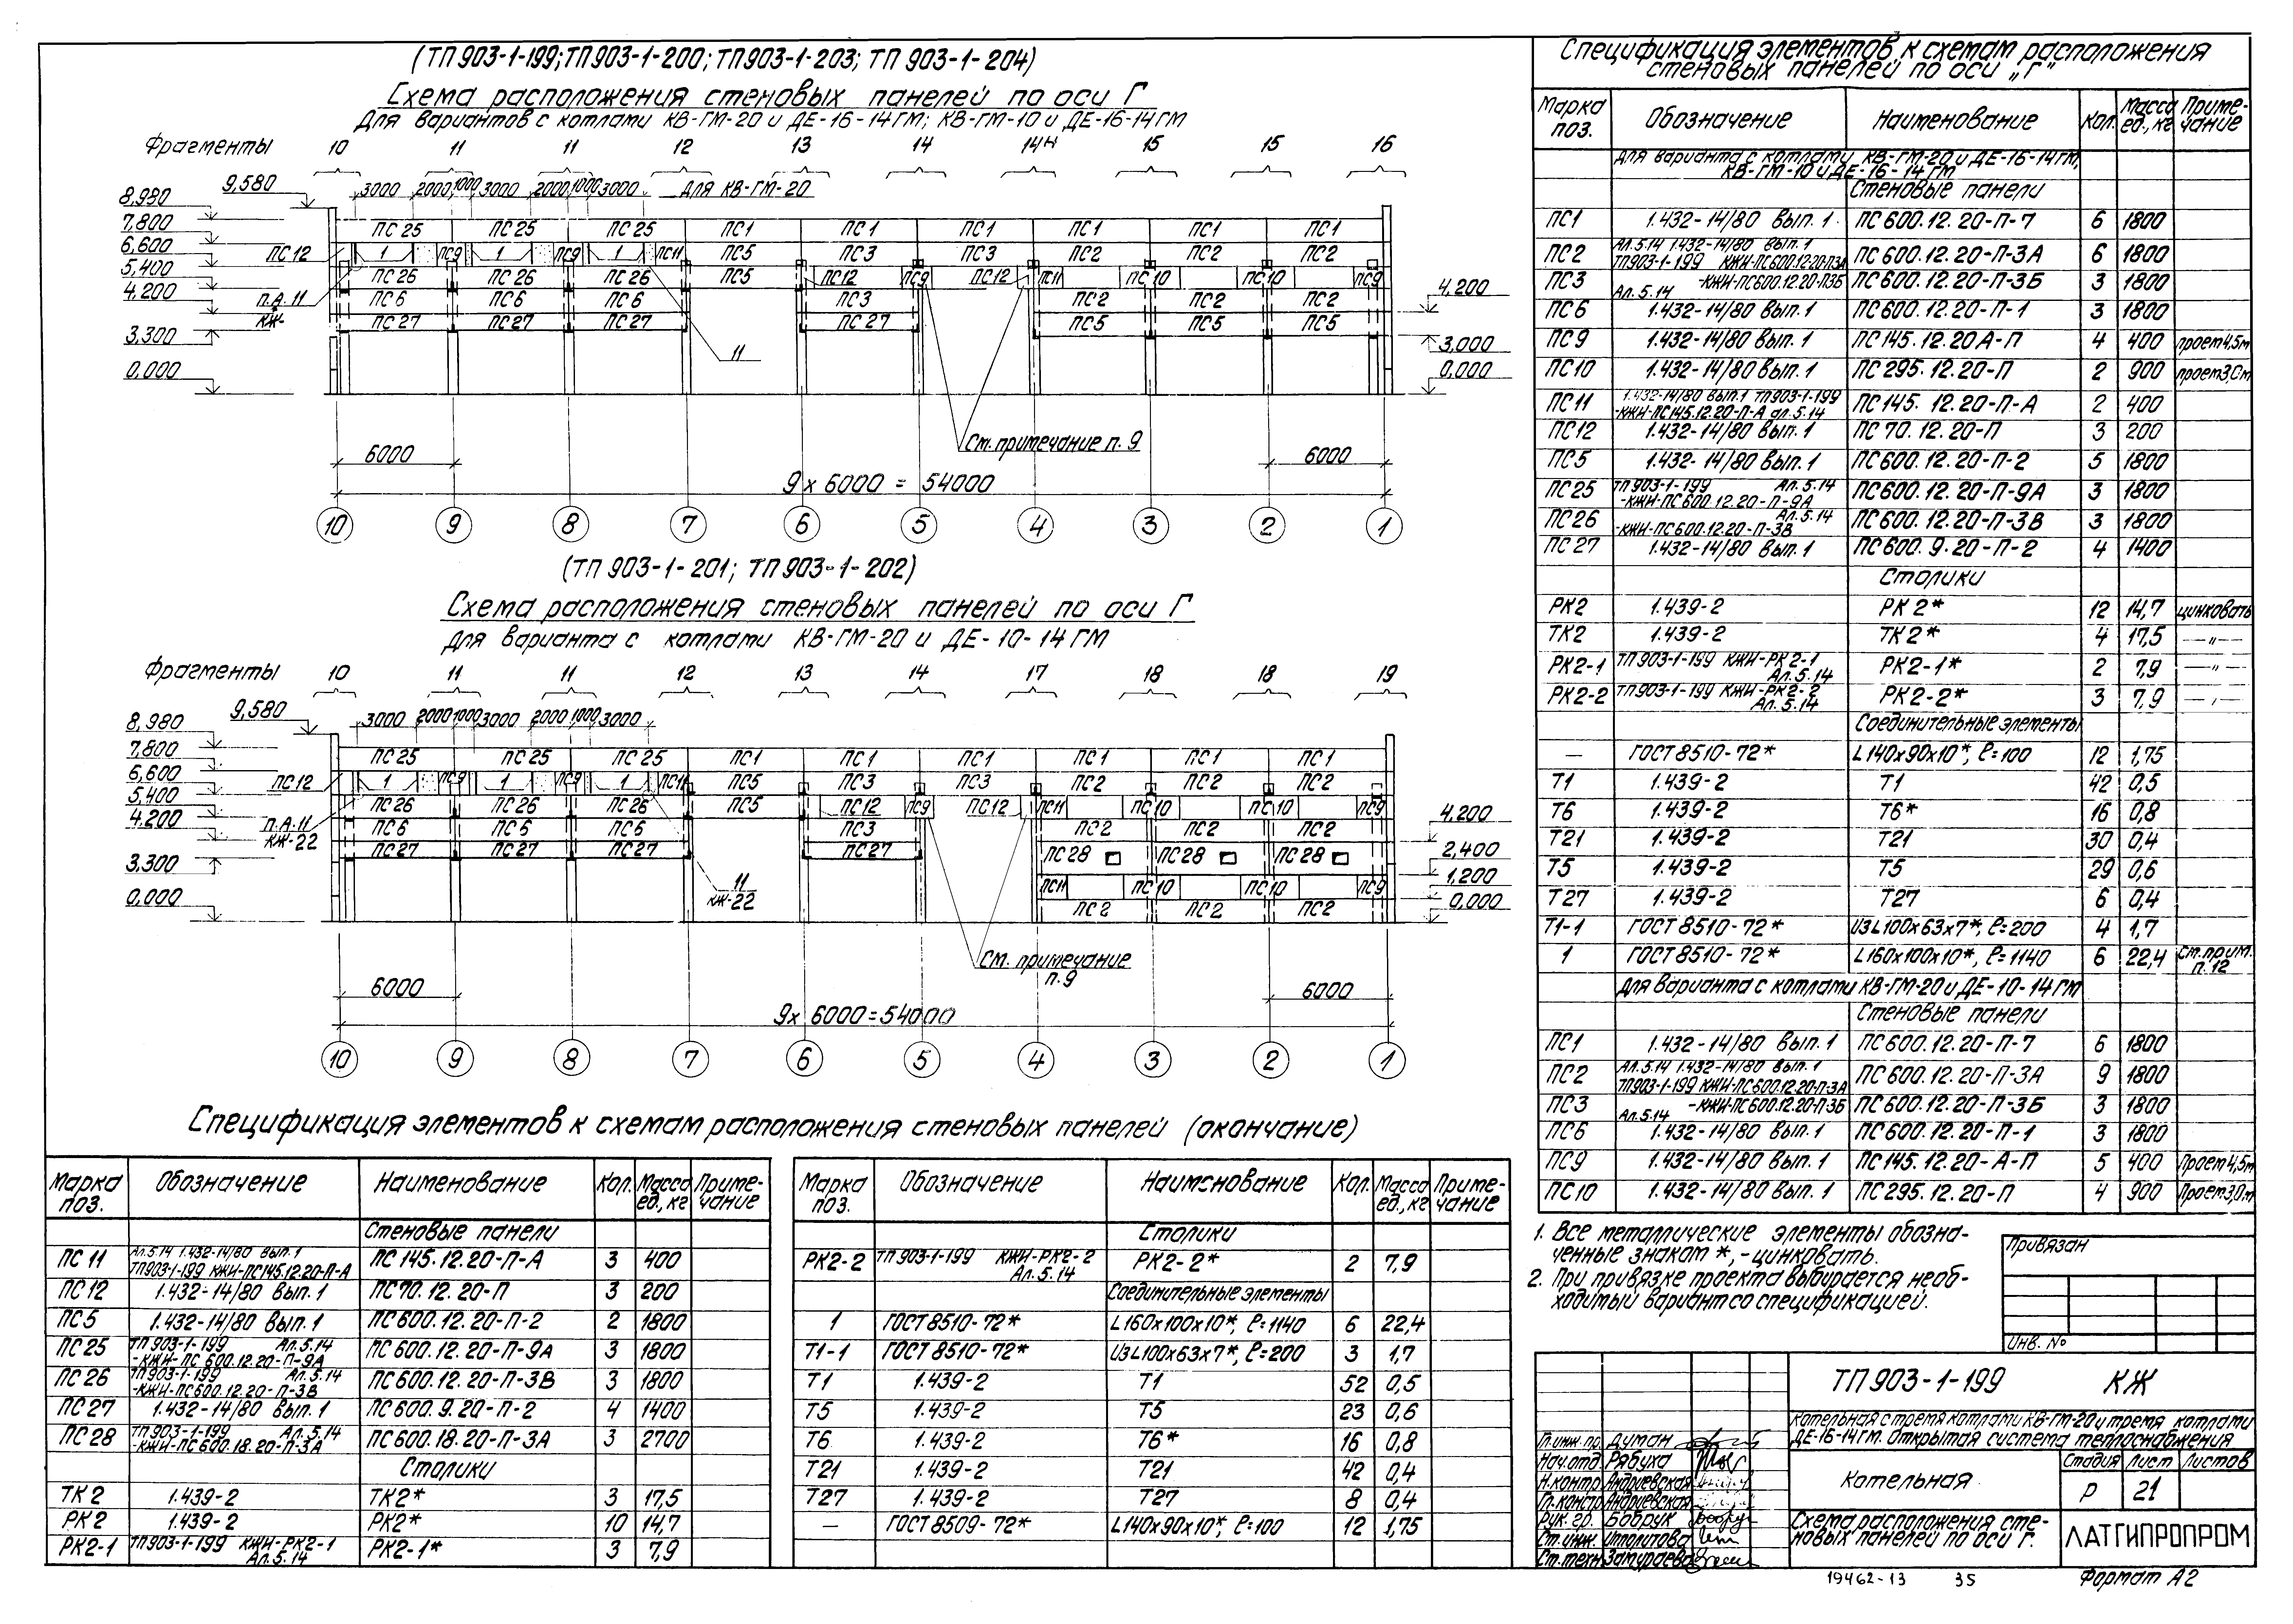 (ТП 903-1-199; ТП 903-1-200; ТП 903-1-203; ТП 903-1-204)
Схема расположения стеновых панелей по оси Г
Для вариантов с котлами КВ-ГМ-20 и ДЕ-16-14ГМ; КВ-ГМ-10 и ДЕ-16-14ГМ
Фрагменты 10 11 11 12 13 14 14Н 15 15 16
3000 2000 1000 3000 2000 1000 3000 для КВ-ГМ-20
9,580
8,980
7,800
6,600
5,400
4,200
3,300
0,000
ПС 25 ПС 25 ПС 25 ПС1 ПС1 ПС1 ПС1 ПС1 ПС1
ПС 12 1 ПС9 1 ПС9 1 ПС11 ПС5 ПС3 ПС3 ПС2 ПС2 ПС2
ПС 26 ПС 26 ПС 26 ПС5 ПС12 ПС9 ПС12 ПС11 ПС10 ПС10 ПС9
ПС 6 ПС 6 ПС 6 ПС3 ПС2 ПС2 ПС2
ПС 27 ПС 27 ПС 27 ПС 27 ПС5 ПС5 ПС5
п.А.11
КЖ-
11
4,200
3,000
0,000
См. примечание п. 9
6000 6000
9 х 6000 = 54000
10 9 8 7 6 5 4 3 2 1
(ТП 903-1-201; ТП 903-1-202)
Схема расположения стеновых панелей по оси Г
Для варианта с котлами КВ-ГМ-20 и ДЕ-10-14ГМ
Фрагменты 10 11 11 12 13 14 17 18 18 19
3000 2000 1000 3000 2000 1000 3000
9,580
8,980
7,800
6,600
5,400
4,200
3,300
0,000
ПС 25 ПС 25 ПС 25 ПС1 ПС1 ПС1 ПС1 ПС1 ПС1
ПС12 1 ПС9 1 ПС9 1 ПС11 ПС5 ПС3 ПС3 ПС2 ПС2 ПС2
ПС 26 ПС 26 ПС 26 ПС5 ПС12 ПС9 ПС12 ПС11 ПС10 ПС10 ПС9
ПС6 ПС6 ПС6 ПС3 ПС2 ПС2 ПС2
ПС27 ПС27 ПС27 ПС27 ПС28 ПС28 ПС28
ПС11 ПС10 ПС10 ПС9
ПС2 ПС2 ПС2
п.А.11
КЖ-22
11
КЖ-22
4,200
2,400
1,200
0,000
См. примечание
п.9
6000 6000
9х 6000=54000
10 9 8 7 6 5 4 3 2 1
Спецификация элементов к схемам расположения стеновых панелей (окончание)
Марка поз. Обозначение Наименование Кол. Масса ед., кг Примечание
Стеновые панели
ПС 11 Ал.5.14 1.432-14/80 вып. 1 ТП903-1-199 КЖИ-ПС145.12.20-П-А ПС 145.12.20-П-А 3 400
ПС 12 1.432-14/80 вып. 1 ПС 70.12.20-П 3 200
ПС 5 1.432-14/80 вып. 1 ПС 600.12.20-П-2 2 1800
ПС 25 ТП 903-1-199 Ал.5.14 -КЖИ-ПС 600.12.20-П-9А ПС 600.12.20-П-9А 3 1800
ПС 26 ТП903-1-199 Ал.5.14 -КЖИ-ПС600.12.20-П-3В ПС 600.12.20-П-3В 3 1800
ПС 27 1.432-14/80 вып. 1 ПС 600.9.20-П-2 4 1400
ПС 28 ТП 903-1-199 Ал.5.14 -КЖИ-ПС600.18.20-П-3А ПС 600.18.20-П-3А 3 2700
Столики
ТК 2 1.439-2 ТК2* 3 17,5
РК 2 1.439-2 РК2* 10 14,7
РК2-1 ТП903-1-199 КЖИ-РК2-1 Ал.5.14 РК2-1* 3 7,9
Марка поз. Обозначение Наименование Кол. Масса ед., кг Примечание
Столики
РК2-2 ТП 903-1-199 КЖИ-РК2-2 Ал.5.14 РК2-2* 2 7,9
Соединительные элементы
1 ГОСТ 8510-72* L160х100х10*, ℓ=1140 6 22,4
Т1-1 ГОСТ 8510-72* ИЗ L100х63х7*, ℓ=200 3 1,7
Т1 1.439-2 Т1 52 0,5
Т5 1.439-2 Т5 23 0,6
Т6 1.439-2 Т6* 16 0,8
Т21 1.439-2 Т21 42 0,4
Т27 1.439-2 Т27 8 0,4
— ГОСТ 8509-72* L140х90х10*, ℓ=100 12 1,75
Спецификация элементов к схемам расположения
стеновых панелей по оси „Г"
Марка поз. Обозначение Наименование Кол. Масса ед., кг Примечание
Для варианта с котлами КВ-ГМ-20 и ДЕ-16-14ГМ,
КВ-ГМ-10 и ДЕ-16-14ГМ
Стеновые панели
ПС1 1.432-14/80 вып. 1 ПС 600.12.20-П-7 6 1800
ПС2 Ал.5.14 1.432-14/80 вып. 1 ТП903-1-199 КЖИ-ПС600.12.20-П-3А ПС 600.12.20-П-3А 6 1800
ПС3 Ал.5.14 -КЖИ-ПС600.12.20-П-3Б ПС 600.12.20-П-3Б 3 1800
ПС6 1.432-14/80 вып. 1 ПС 600.12.20-П-1 3 1800
ПС9 1.432-14/80 вып. 1 ПС 145.12.20А-П 4 400 проет4,5м
ПС10 1.432-14/80 вып. 1 ПС 295.12.20-П 2 900 проет3,0м
ПС11 1.432-14/80 вып.1 ТП903-1-199 -КЖИ-ПС145.12.20-П-А ал.5.14 ПС145.12.20-П-А 2 400
ПС12 1.432-14/80 вып. 1 ПС 70.12.20-П 3 200
ПС5 1.432-14/80 вып. 1 ПС 600.12.20-П-2 5 1800
ПС25 ТП903-1-199 Ал.5.14 -КЖИ-ПС600.12.20-П-9А ПС600.12.20-П-9А 3 1800
ПС26 Ал.5.14 -КЖИ-ПС600.12.20-П-3В ПС 600.12.20-П-3В 3 1800
ПС 27 1.432-14/80 вып. 1 ПС 600.9.20-П-2 4 1400
Столики
РК2 1.439-2 РК 2* 12 14,7 цинковать
ТК2 1.439-2 ТК 2* 4 17,5 —„—
РК2-1 ТП903-1-199 КЖИ-РК2-1 Ал.5.14 РК2-1* 2 7,9 —„—
РК2-2 ТП903-1-199 КЖИ-РК2-2 Ал.5.14 РК2-2* 3 7,9 —„—
Соединительные элементы
— ГОСТ 8510-72* L140х90х10*, ℓ=100 12 1,75
Т1 1.439-2 Т1 42 0,5
Т6 1.439-2 Т6* 16 0,8
Т21 1.439-2 Т21 30 0,4
Т5 1.439-2 Т5 29 0,6
Т27 1.439-2 Т27 6 0,4
Т1-1 ГОСТ 8510-72* ИЗ L100х63х7*, ℓ=200 4 1,7
1 ГОСТ 8510-72* L160х100х10*, ℓ=1140 6 22,4 См.прим. п.12
Для варианта с котлами КВ-ГМ-20 и ДЕ-10-14ГМ
Стеновые панели
ПС1 1.432-14/80 вып. 1 ПС 600.12.20-П-7 6 1800
ПС2 Ал.5.14 1.432-14/80 вып. 1 ТП903-1-199 КЖИ-ПС600.12.20-П-3А ПС 600.12.20-П-3А 9 1800
ПС3 Ал.5.14 -КЖИ-ПС600.12.20-П-3Б ПС 600.12.20-П-3Б 3 1800
ПС6 1.432-14/80 вып. 1 ПС 600.12.20-П-1 3 1800
ПС9 1.432-14/80 вып. 1 ПС 145.12.20-А-П 5 400 Проет4,5м
ПС10 1.432-14/80 вып. 1 ПС 295.12.20-П 4 900 Проет3,0м
1. Все металлические элементы обозна-
ченные знаком *, - цинковать.
2. При привязке проекта выбирается необ-
ходимый вариант со спецификацией.
Привязан
Инв. №
ТП 903-1-199 КЖ
Котельная с тремя котлами КВ-ГМ-20 и тремя котлами
ДЕ-16-14ГМ. Открытая система теплоснабжения
Гл.инж.пр. Думан
Нач.отд. Рябуха
Н.контр. Андриевская
Гл.констр. Андриевская
Рук. гр. Бобрук
Ст.инж. Ипполитова
Ст.техн. Замураева
Котельная
Стадия Лист Листов
Р 21
Схема расположения сте-
новых панелей по оси Г.
ЛАТГИПРОПРОМ
19462-13 35
Формат А2